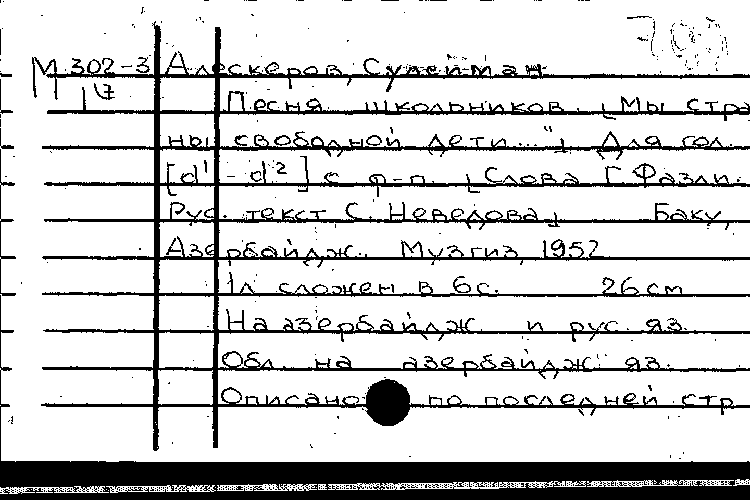 М 302-3 Алескеров, Сулейман
17 Песня школьников. [Мы стра
ны свободной дети..."] Для гол.
[d¹ - d²] с ф-п. [Слова Г. Фазли.
Рус. текст С. Неведова] Баку,
Азербайдж. Музгиз, 1952
1л сложен в 6с. 26см
На азербайдж. и рус. яз.
Обл. на азербайдж. яз.
Описано по последней стр